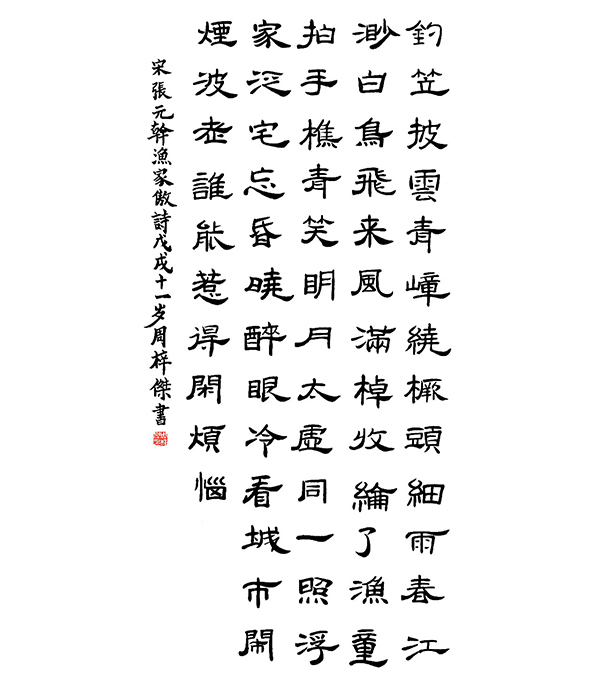 釣笠披雲青嶂繞橛頭細雨春江
渺白鳥飛来風滿棹收綸了漁童
拍手樵青笑眀月太虛同一照浮
家泛宅忘昏曉醉眼冷看城市鬧
煙波老誰能惹得閑煩惱
宋張元幹漁家傲詩戊戌十一岁周梓傑書